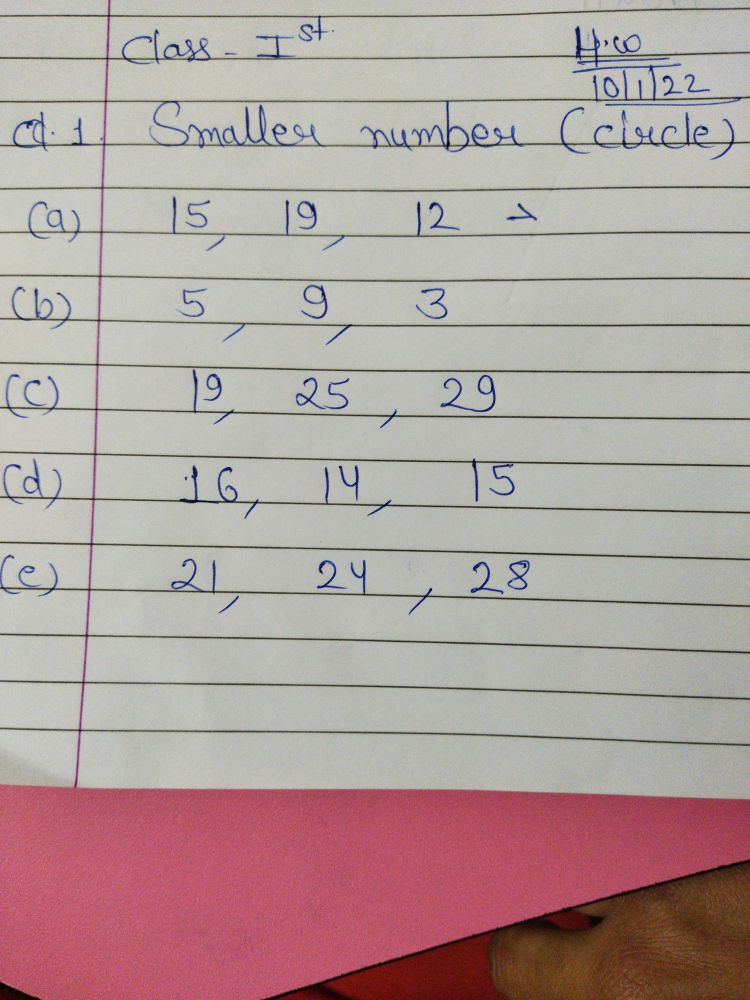 Class - Ist.
H.W
10/1/22
Q.1. Smaller number (circle)
(a) 15, 19, 12
(b) 5, 9, 3
(c) 19, 25, 29
(d) 16, 14, 15
(e) 21, 24, 28